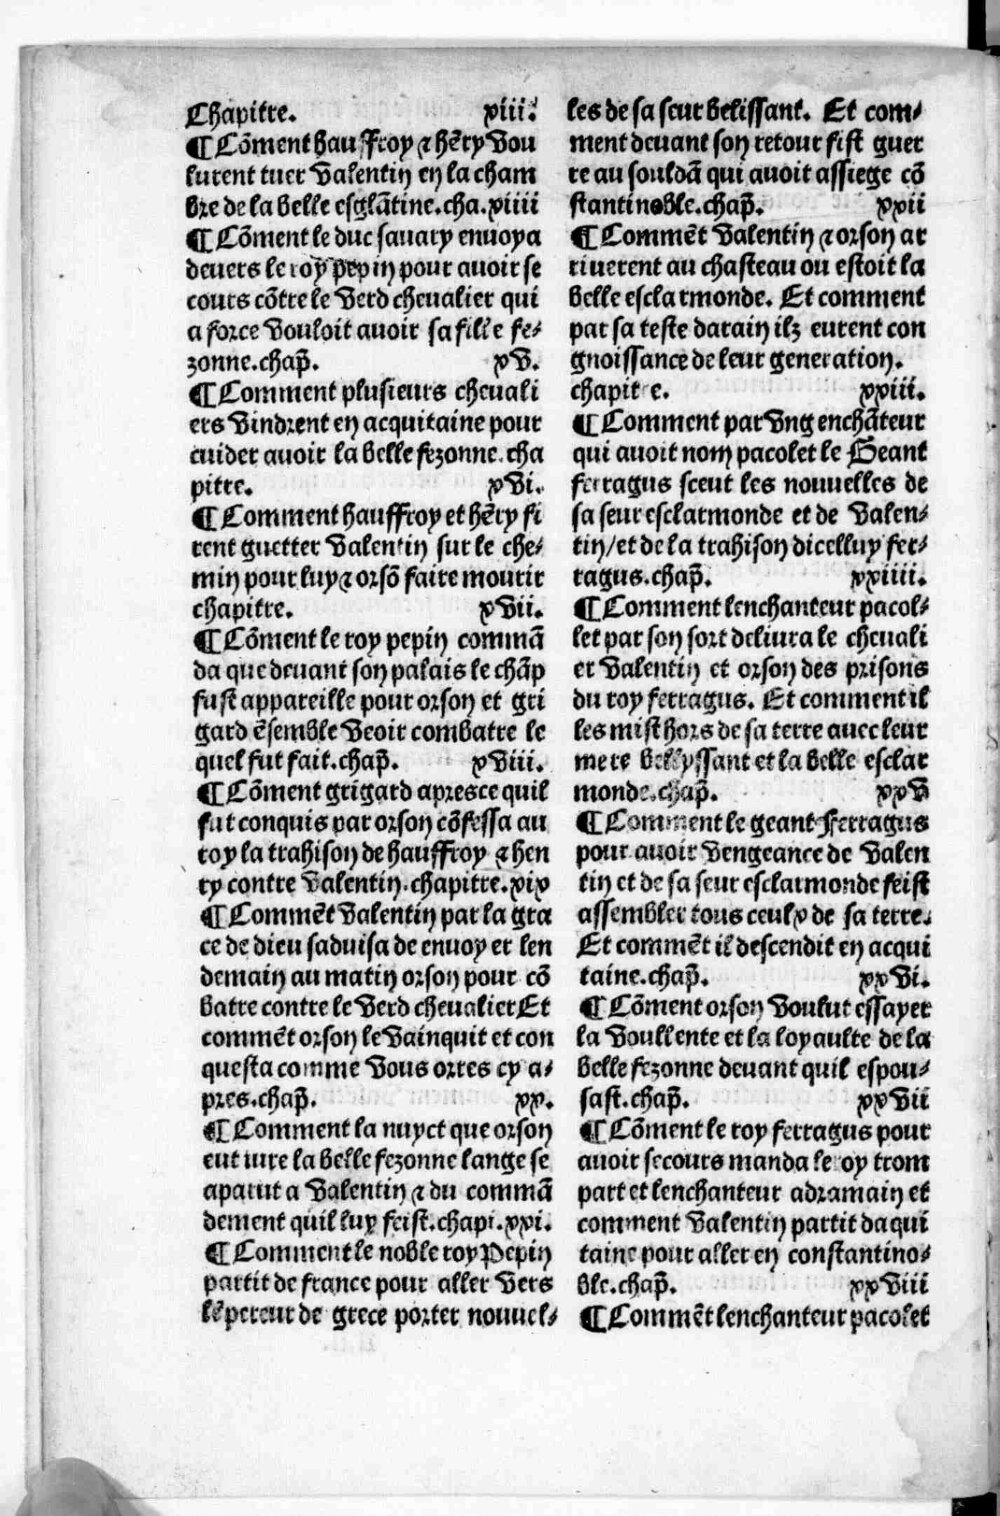 Chapitre. xiii.
¶ Cõment hauffroy ⁊ hẽry vou
lurent tuer valentin en la cham
bre de la belle esglãtine.cha.xiiii
¶ Cõment le duc savary envoya
devers le roy pepin pour avoir se
cours cõtre le verd chevalier qui
a force vouloit avoir sa fille fe-
zonne.chap̃. xv.
¶ Comment plusieurs chevali
ers vindrent en acquitaine pour
cuider avoir la belle fezonne.cha
pitre. xvi.
¶ Comment hauffroy et hẽry fi
rent guetter valentin sur le che-
min pour luy ⁊ orsõ faire mourir
chapitre. xvii.
¶ Cõment le roy pepin commã
da que devant son palais le chãp
fust appareille pour orson et gri
gard ẽsemble veoir combatre le
quel fut fait.chap̃. xviii.
¶ Cõment grigard apresce quil
fut conquis par orson cõfessa au
roy la trahison de hauffroy ⁊ hen
ry contre valentin.chapitre.xix
¶ Commẽt valentin par la gra
ce de dieu sadvisa de envoyer len
demain au matin orson pour cõ
batre contre le verd chevalier Et
commẽt orson le vainquit et con
questa comme vous orres cy a-
pres.chap̃. xx.
¶ Comment la nuyct que orson
eut iure la belle fezonne lange se
aparut a valentin ⁊ du commã
dement quil luy feist.chapi.xxi.
¶ Comment le noble roy Pepin
partit de france pour aller vers
lẽpereur de grece porter nouvel-
les de sa seur belissant. Et com-
ment devant son retour fist guer
re au souldã qui avoit assiege cõ
stantinoble.chap̃. xxii
¶ Commẽt valentin ⁊ orson ar
riverent au chasteau ou estoit la
belle esclarmonde. Et comment
par sa teste darain ilz eurent con
gnoissance de leur generation.
chapitre. xxiii.
¶ Comment par ung enchãteur
qui avoit nom pacolet le Geant
ferragus sceut les nouvelles de
sa seur esclarmonde et de valen-
tin/et de la trahison dicelluy fer-
ragus.chap̃. xxiiii.
¶ Comment lenchanteur pacol-
let par son sort delivra le chevali
er valentin et orson des prisons
du roy ferragus. Et comment il
les mist hors de sa terre avec leur
mere bellyssant et la belle esclar
monde.chap̃. xxv
¶ Comment le geant ferragus
pour avoir vengeance de valen
tin et de sa seur esclarmonde feist
assembler tous ceulx de sa terre.
Et commẽt il descendit en acqui
taine.chap̃. xxvi.
¶ Cõment orson voulut essayer
la voullente et la loyaulte de la
belle fezonne devant quil espou-
sast.chap̃. xxvii
¶ Cõment le roy ferragus pour
avoir secours manda le roy trom
part et lenchanteur adramain et
comment valentin partit daqui
taine pour aller en constantino-
ble.chap̃. xxviii
¶ Commẽt lenchanteur pacolet